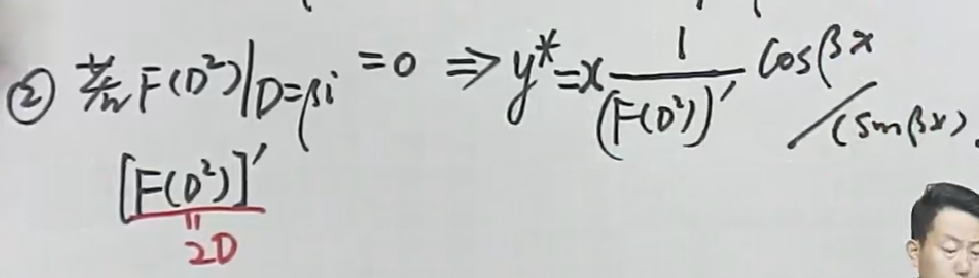 ② 若F(D²)|D=βi =0 ⇒ y*=x 1/(F(D²))′ cosβx/(sinβx)
[F(D²)]′
=
2D